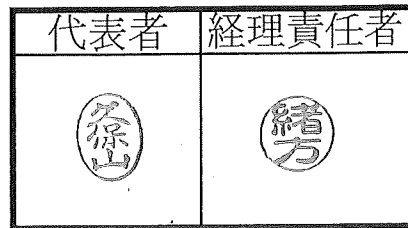 代表者
経理責任者
久保山
緒方